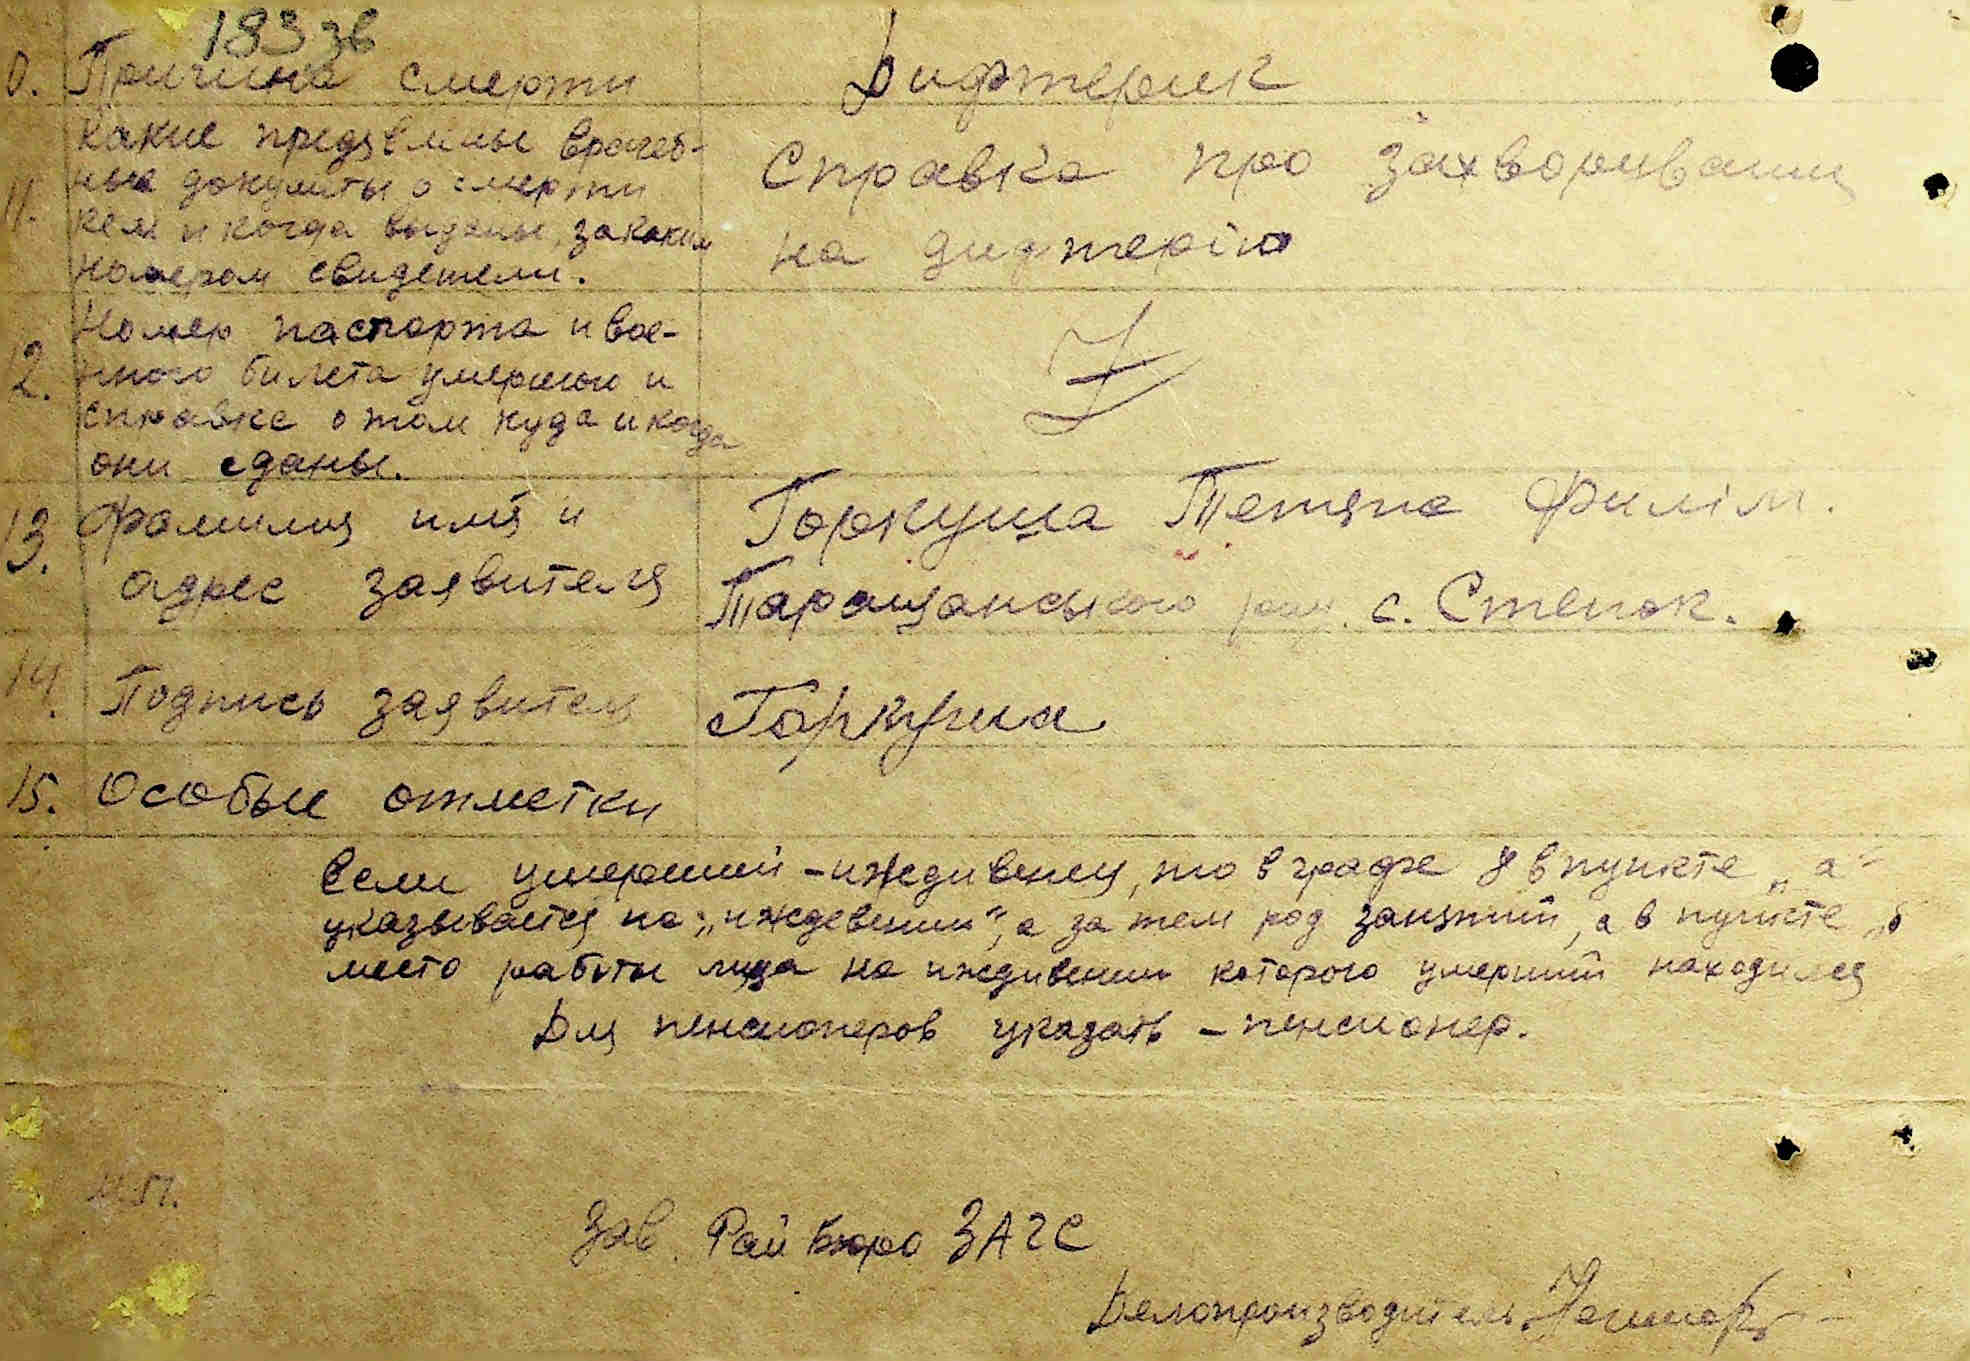 183 зв
10. Причина смерти Дифтерик
11. Какие предъвлны врачеб-
ные документы о смерти
кем и когда выданы, за каким
номером свидетели.
Справка про захворивании
на дифтерію
12. Номер паспорта и вое-
нного билета умершого и
справке о том куда и когда
они сданы.
13. Фамилия имя и
адрес заявителя
Горкуша Тетяна Филім.
Таращанського рай. с. Степок.
14. Подпись заявител Гаркуша
15. Особые отметки
Если умерший - иждивенец, то в графе 8 в пункте „а"
указывается на: „иждевении", а за тем род занятий, а в пункте „б
место работы лица на иждивении которого умерший находился
Для пенсионеров указать - пенсионер.
М.П.
Зав. Рай бюро ЗАГС
Делопроизводитель